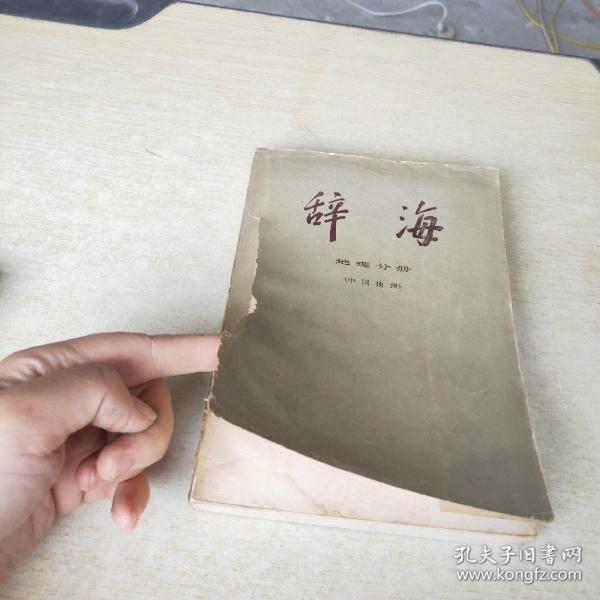 辞海
地理分册
(中国地理)
孔夫子旧书网
www.kongfz.com